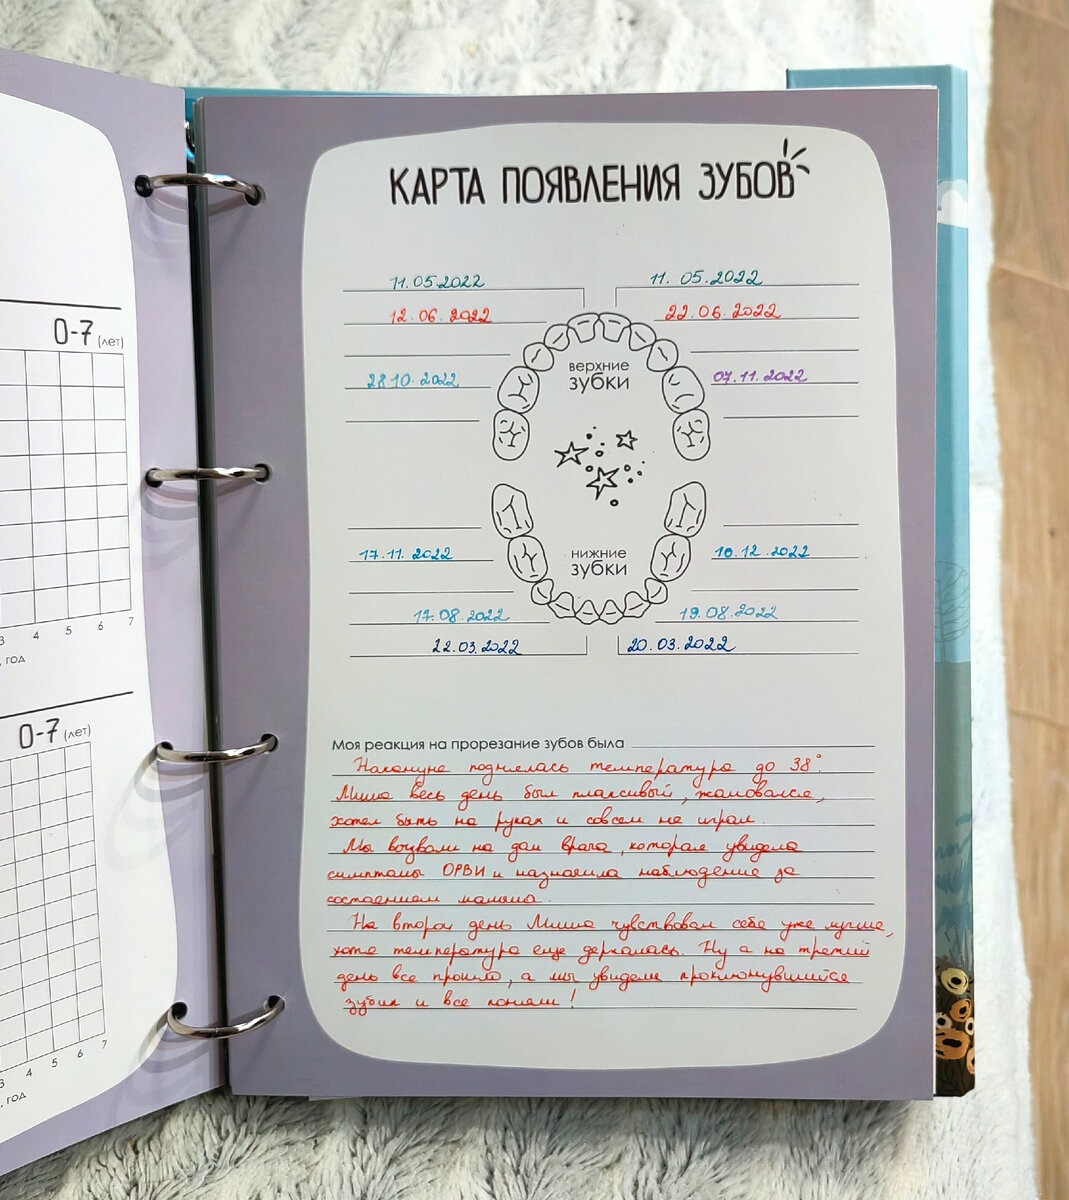 КАРТА ПОЯВЛЕНИЯ ЗУБОВ
11.05.2022
11.05.2022
12.06.2022
22.06.2022
верхние
зубки
28.10.2022
07.11.2022
17.11.2022
10.12.2022
нижние
зубки
17.08.2022
19.08.2022
22.03.2022
20.03.2022
Моя реакция на прорезание зубов была
Накануне поднялась температура до 38°.
Миша весь день был плаксивый, жаловался,
хотел быть на руках и совсем не играл.
Мы вызвали на дом врача, которая увидела
симптомы ОРВИ и назначила наблюдение за
состоянием малыша.
На второй день Миша чувствовал себя уже лучше,
хотя температура еще держалась. Ну а на третий
день все прошло, а мы увидели проклюнувшийся
зубик и все поняли!
0-7 (лет)
3 4 5 6 7
, год
0-7 (лет)
3 4 5 6 7
, год